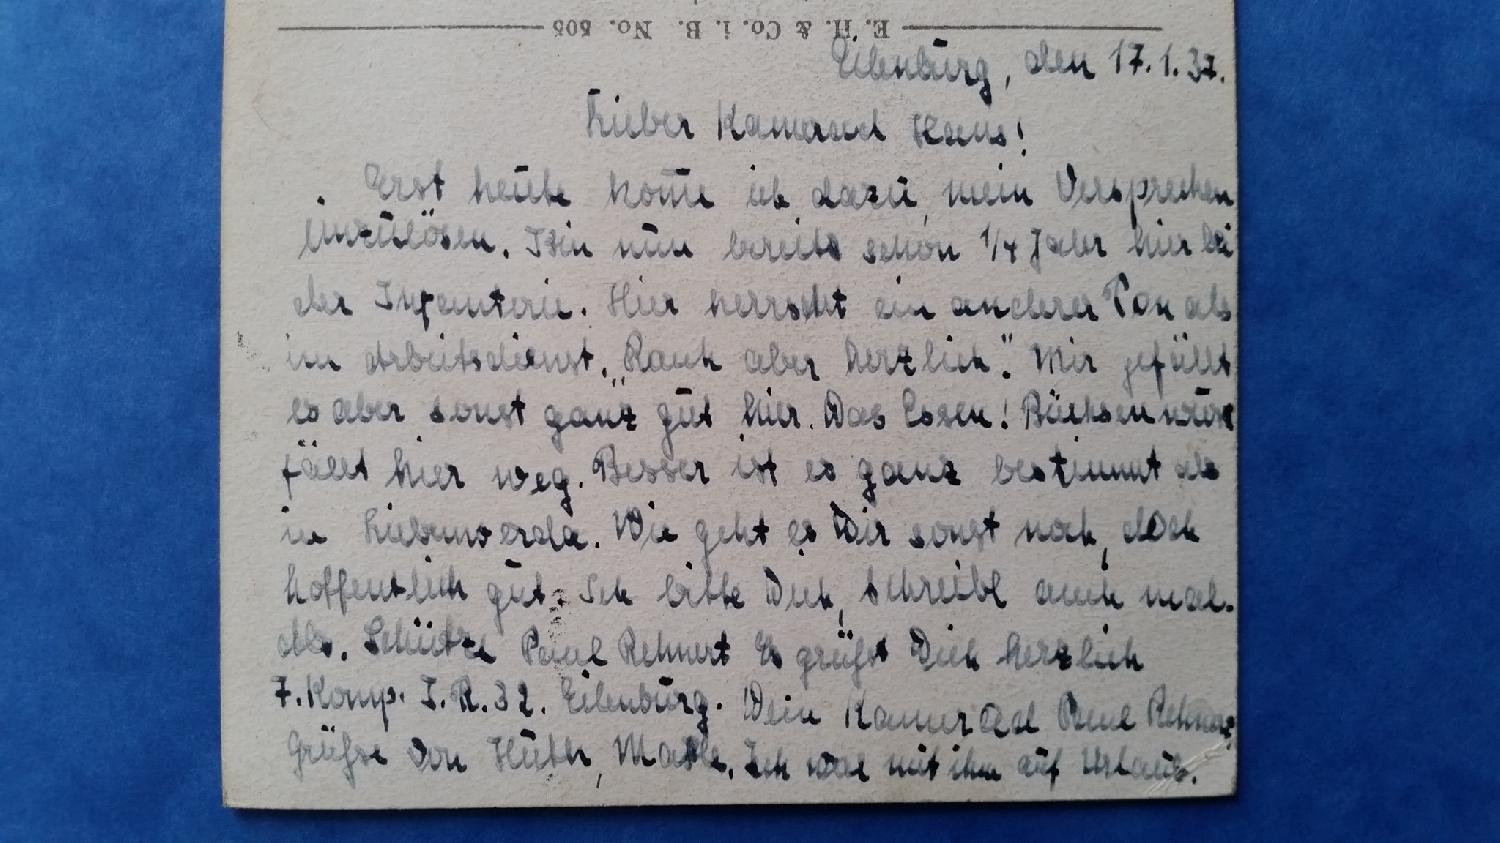 E. H. & Co. i. B. No. 505
Eilenburg, den 17.1.37.
Lieber Kamerad Hans!
Erst heute kom̄e ich dazu, mein Versprechen
einzulösen. Bin nun bereits schon 1/4 Jahr hier bei
der Infanterie. Hier herrscht ein anderer Ton als
im Arbeitsdienst. „Rauh aber herzlich". Mir gefällt
es aber sonst ganz gut hier. Das Essen! Büchsenwurst
fällt hier weg. Besser ist es ganz bestimmt als
in Liebenwerda. Wie geht es Dir sonst noch, doch
hoffentlich gut. Ich bitte Dich, schreibe auch mal.
Abs. Schütze Paul Rehnert Es grüßt Dich herzlich
7. Komp. I.R.32. Eilenburg. Dein Kamerad Paul Rehnert
Grüße von Huth, Ich war mit ihm auf Urlaub.